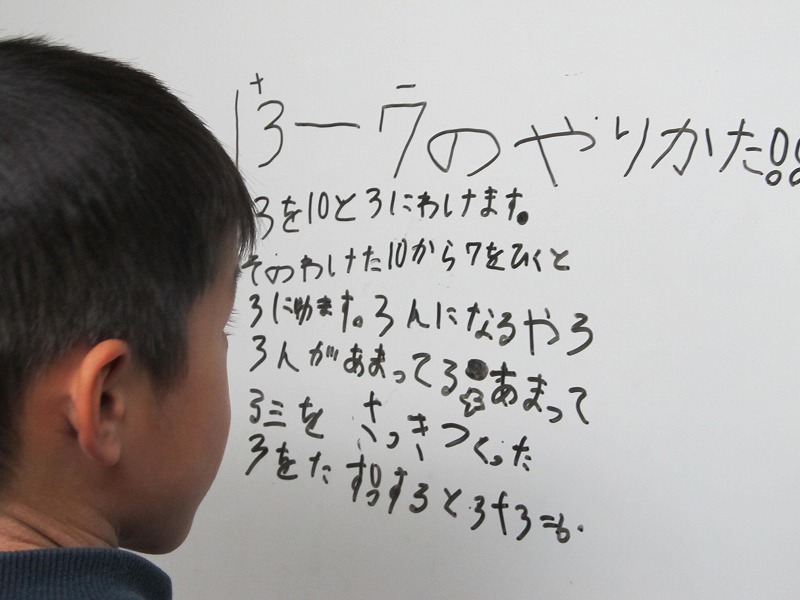 13-7のやりかた!!
3を10と3にわけます。
そのわけた10から7をひくと
3になります。3んになるやろ
3んがあまってる あまって
3三を さっきつくった
3をたすするると3+3=6.